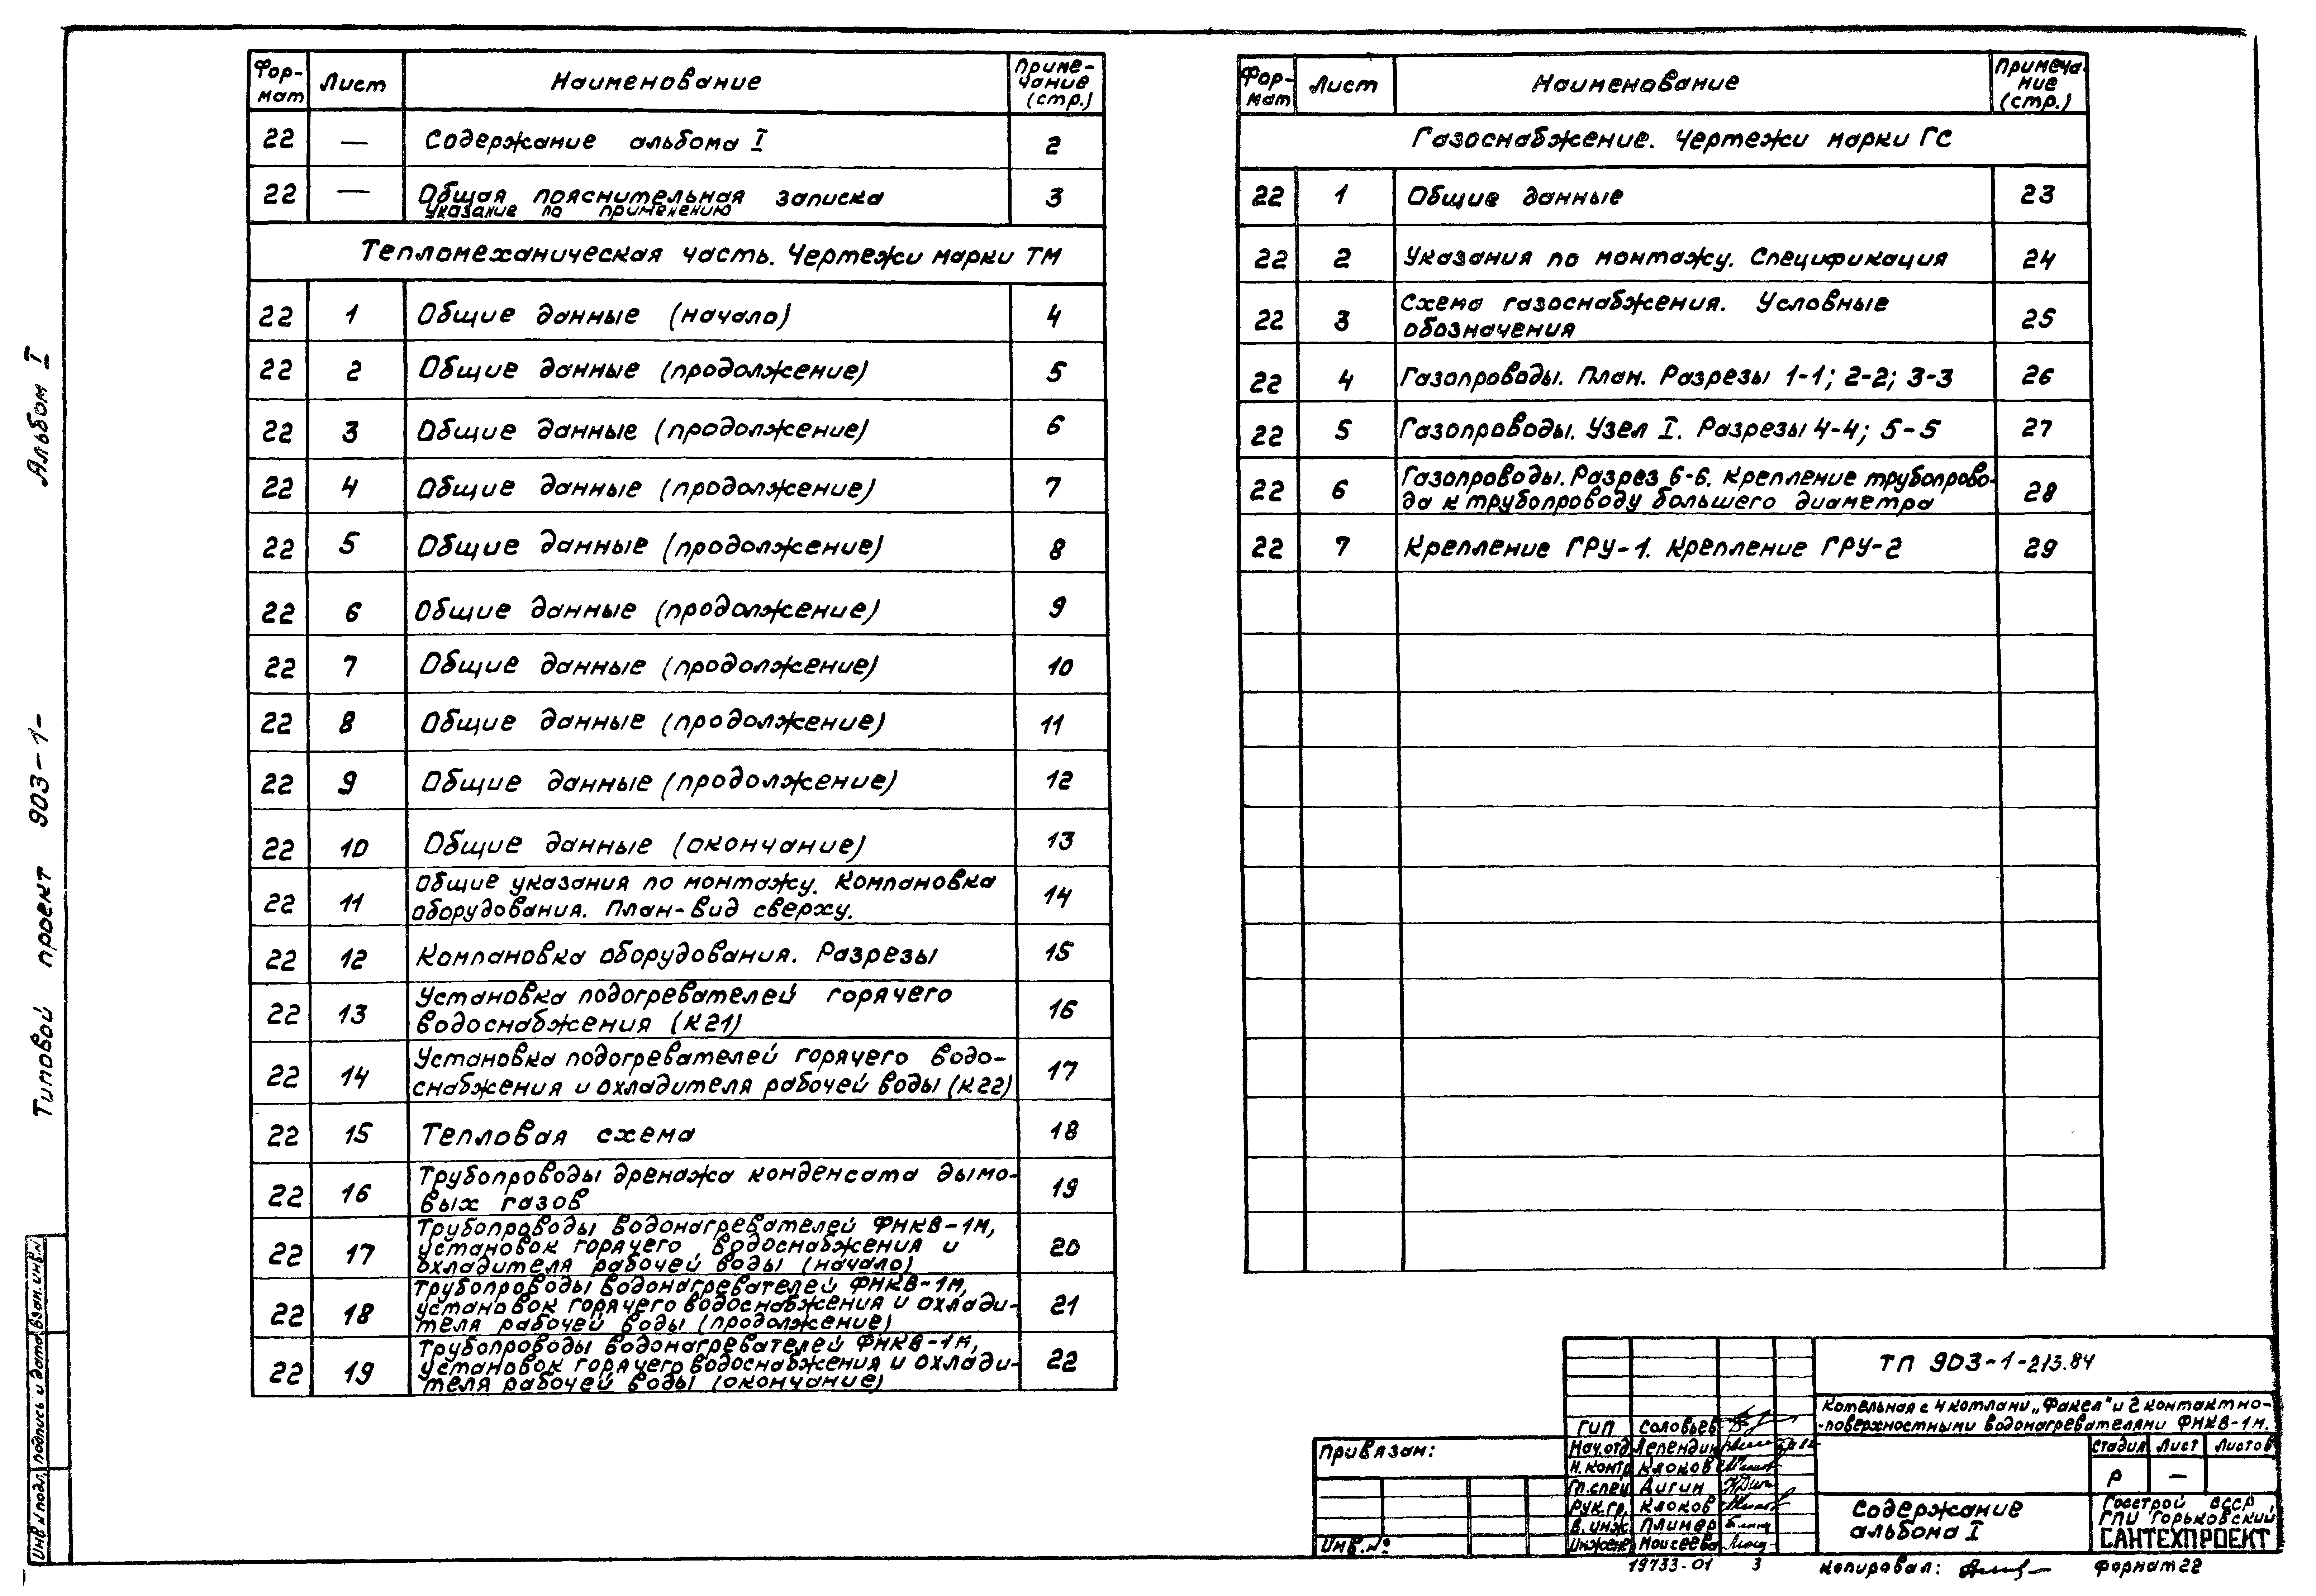 Альбом I
Типовой проект 903-1-
Инв.№подл. Подпись и дата Взам.инв.№
Фор-
мат Лист Наименование Приме-
чание
(стр.)
22 — Содержание альбома I 2
22 — Общая пояснительная записка 3
Указание по применению
Тепломеханическая часть. Чертежи марки ТМ
22 1 Общие данные (начало) 4
22 2 Общие данные (продолжение) 5
22 3 Общие данные (продолжение) 6
22 4 Общие данные (продолжение) 7
22 5 Общие данные (продолжение) 8
22 6 Общие данные (продолжение) 9
22 7 Общие данные (продолжение) 10
22 8 Общие данные (продолжение) 11
22 9 Общие данные (продолжение) 12
22 10 Общие данные (окончание) 13
22 11 Общие указания по монтажу. Компановка
оборудования. План-вид сверху. 14
22 12 Компановка оборудования. Разрезы 15
22 13 Установка подогревателей горячего
водоснабжения (К21) 16
22 14 Установка подогревателей горячего водо-
снабжения и охладителя рабочей воды (К22) 17
22 15 Тепловая схема 18
22 16 Трубопроводы дренажа конденсата дымо-
вых газов 19
22 17 Трубопроводы водонагревателей ФНКВ-1М,
установок горячего водоснабжения и
охладителя рабочей воды (начало) 20
22 18 Трубопроводы водонагревателей ФНКВ-1М,
установок горячего водоснабжения и охлади-
теля рабочей воды (продолжение) 21
22 19 Трубопроводы водонагревателей ФНКВ-1М,
установок горячего водоснабжения и охлади-
теля рабочей воды (окончание) 22
Фор-
мат Лист Наименование Примеча-
ние
(стр.)
Газоснабжение. Чертежи марки ГС
22 1 Общие данные 23
22 2 Указания по монтажу. Спецификация 24
22 3 Схема газоснабжения. Условные
обозначения 25
22 4 Газопроводы. План. Разрезы 1-1; 2-2; 3-3 26
22 5 Газопроводы. Узел I. Разрезы 4-4; 5-5 27
22 6 Газопроводы. Разрез 6-6. Крепление трубопрово-
да к трубопроводу большего диаметра 28
22 7 Крепление ГРУ-1. Крепление ГРУ-2 29
Привязан:
Инв.№
ГИП Соловьев
Нач.отд Лепендин
Н.контр Клоков
Гл.спец Дигин
Рук.гр. Клоков
В.инж. Плинер
Инженер Моисеева
ТП 903-1-213.84
Котельная с 4 котлами „Факел" и 2 контактно-
-поверхностными водонагревателями ФНКВ-1М.
Стадия Лист Листов
Р —
Содержание
альбома I
Госстрой СССР
ГПИ Горьковский
САНТЕХПРОЕКТ
19733-01 3
Копировал:
Формат 22